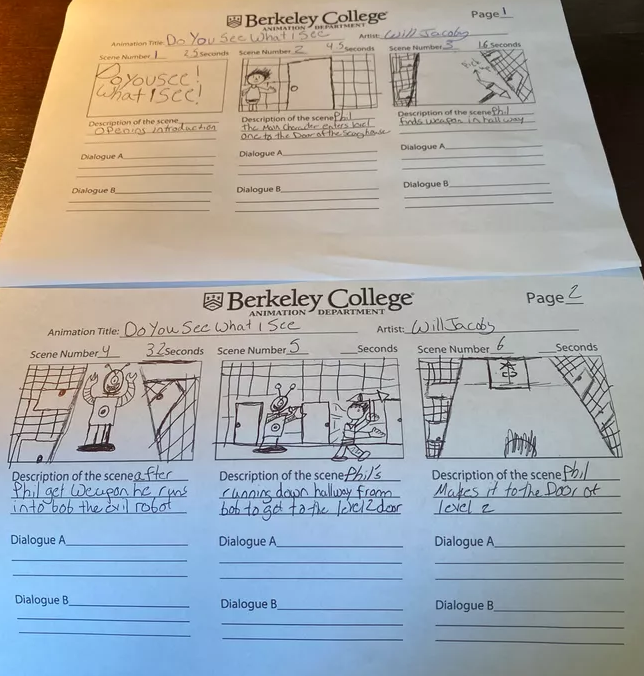 Berkeley College
ANIMATION DEPARTMENT
Page 1
Animation Title: Do You See What I See
Artist: Will Jacobs
Scene Number 1 25 Seconds
Scene Number 2 45 Seconds
Scene Number 3 16 Seconds
Do you see!
What I see!
Description of the scene
Opening introduction
Description of the scene Phil
The Main Character enters level
one to the Door of the
Description of the scene Phil
finds weapon in hall way
Dialogue A
Dialogue A
Dialogue A
Dialogue B
Dialogue B
Dialogue B
Berkeley College
ANIMATION DEPARTMENT
Page 2
Animation Title: Do You See What I See
Artist: Will Jacobs
Scene Number 4 32 Seconds
Scene Number 5 Seconds
Scene Number 6 Seconds
Description of the scene after
Phil get weapon he runs
into bob the evil robot
Description of the scene Phil's
running down hallway from
bob to get to the level 2 door
Description of the scene Phil
Makes it to the Door of
level 2
Dialogue A
Dialogue A
Dialogue A
Dialogue B
Dialogue B
Dialogue B